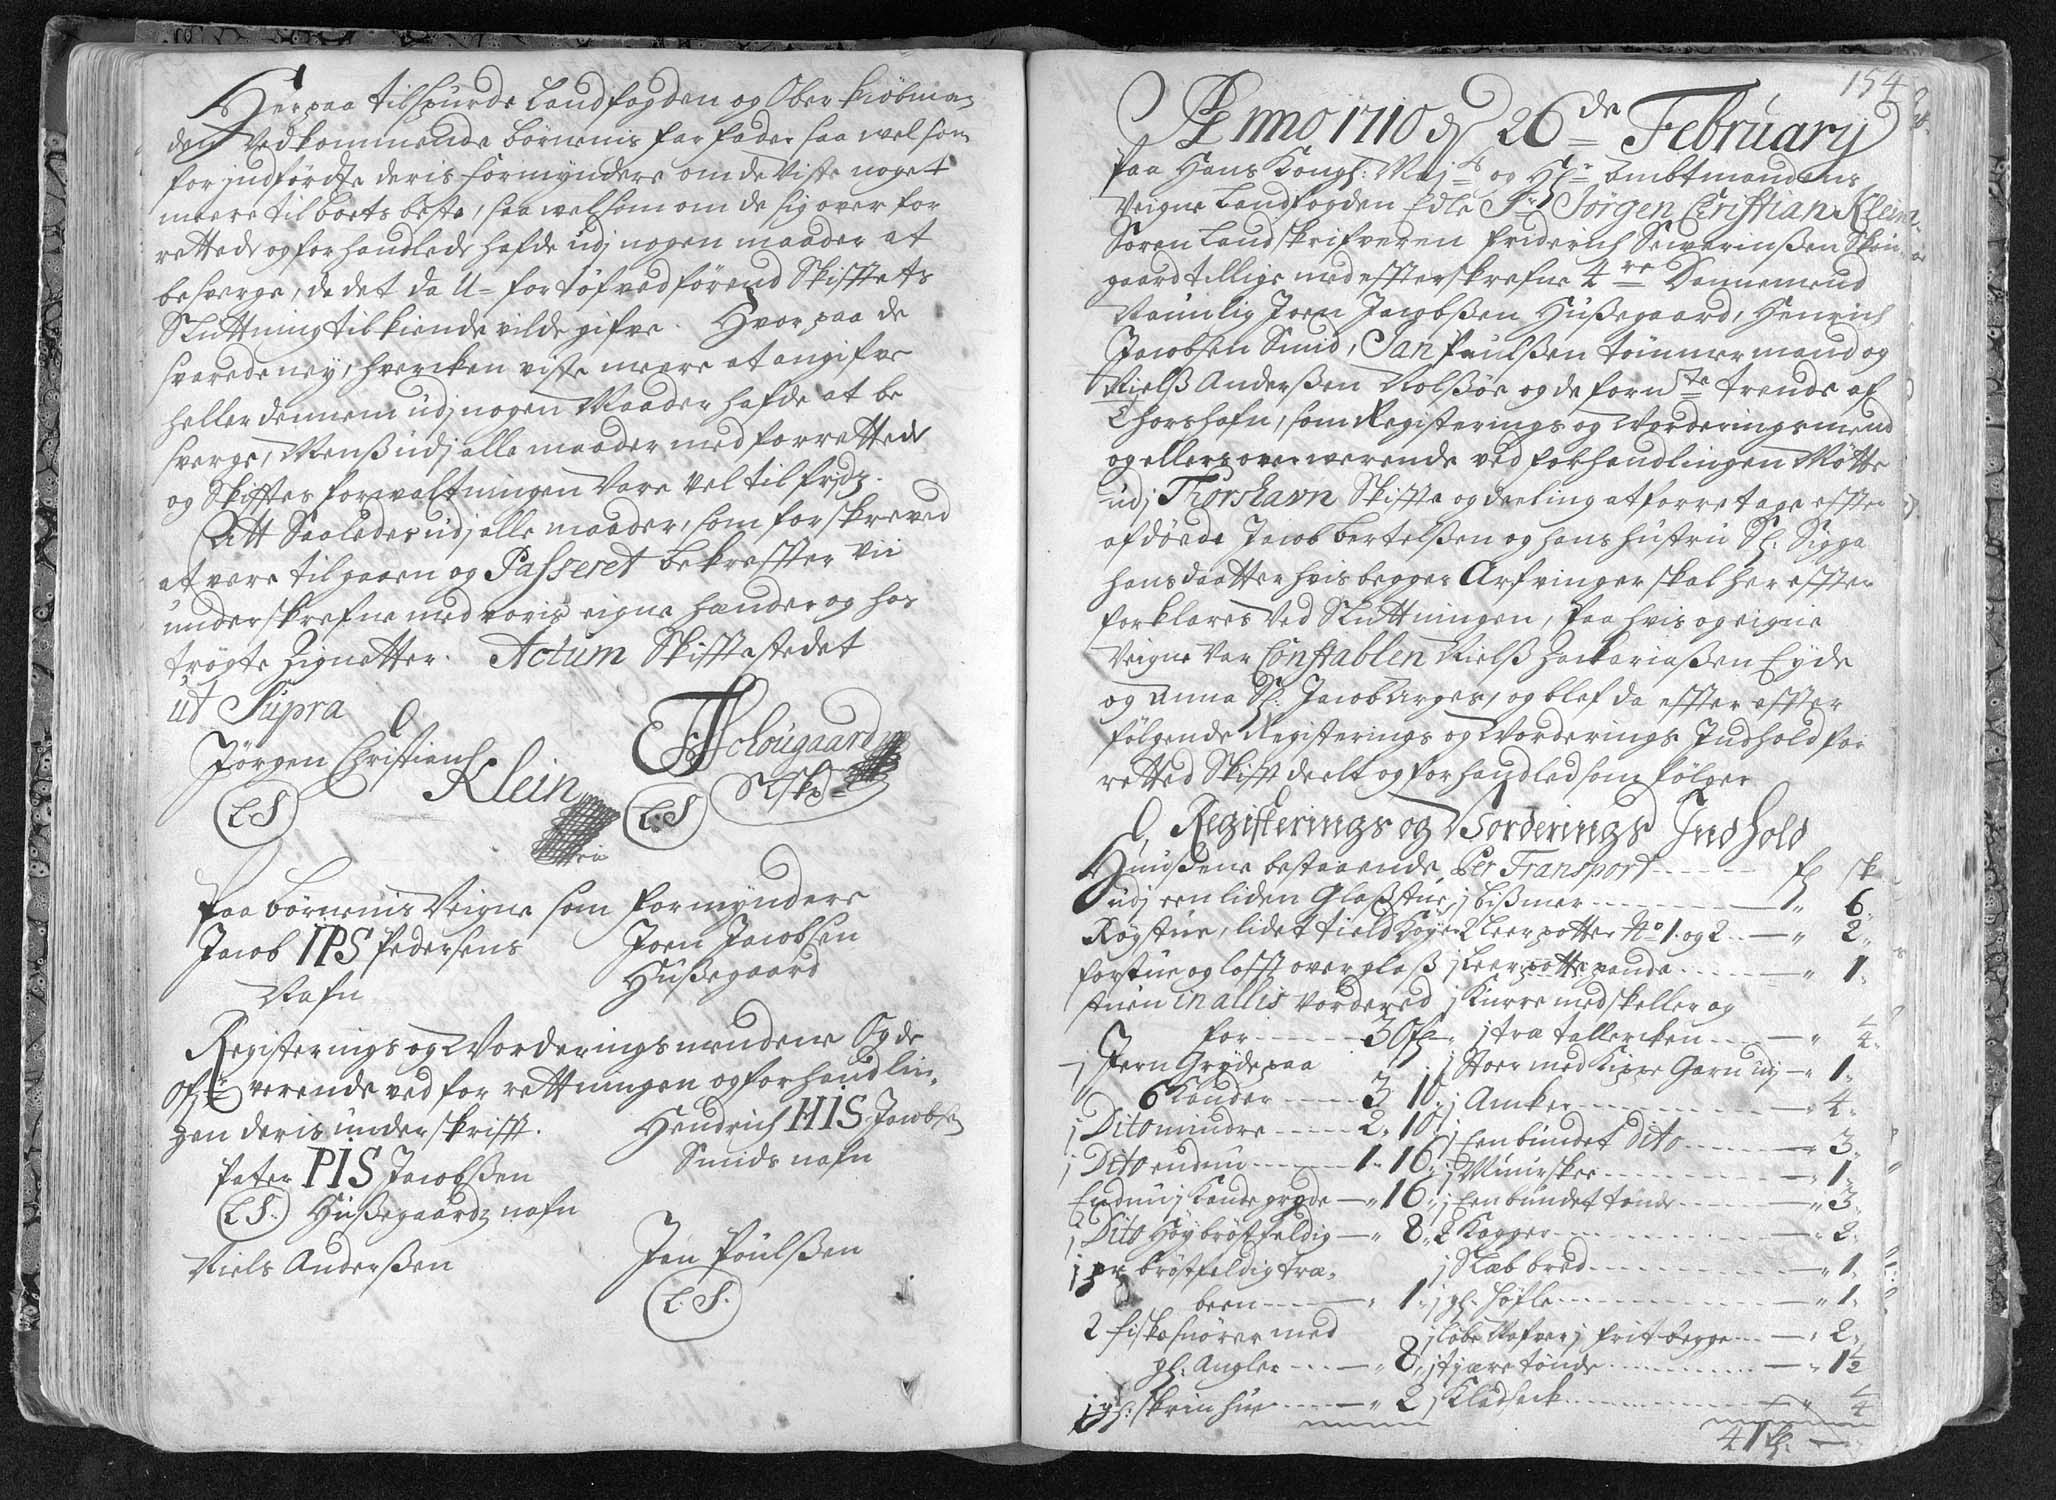 Herpaa tilspurde Landfogden og Ober kiöbma-
den Vedkommende börnenis farfader saa welsom
for indfördte deris formyndere om de viste noget
meere til boets beste, saa welsom om de sig over for
rettede og forhandlede hafde udj nogen maader at
besverge, de det da U-fortöfved förend Skifftets
Sluttning tilkiende vilde gifve. Hvorpaa de
svarede ney, hvercken viste meere at angifve
heller dennem udj nogen Maader hafde at be
sverge, Menß udj alle maader med forrettede
og Skifftes forvaltningen vare vel tilfridz.
Att Saaledes udj alle maader, som forskreved
at vere tilgaaen og Passeret bekreffter vii
underskrefne med voris eigne hænder og hos
trögte Zignetter. Actum Skifftestedet
ut Supra
Jörgen Christians Klein
L S
L. S
Paa börnenis Veigne som formyndere
Jacob IPS Pedersens
Nafn
Joen Jacobsen
Hußegaard
Registerings og Worderings mendene Og de
of: verende ved for rettningen og forhandlin-
gen deris underskrifft.
Peter PIS Jacobßen
L S. Hußegaardz nafn
Niels Anderßen
Hendrich HIS Jacobsen
Smids nafn
Jan Poulßen
L. S.
154
Anno 1710 d 26de February
Paa Hans Kongl: Maj:ts og H:r Ambtmandens
Veigne Landfogden Edle Sr Jörgen Christian Klein
Soren Landskrifveren Friderich Sewerinßen Skou-
gaard tillige med effterskrefne 4re Dannemend
Naunlig Joen Jacobßen Hußegaard, Henrich
Jacobsen Smid, Jan Paulßen tömmermand og
Nielß Anderßen Nolßöe og de fornte trende af
Thorshafn, som Registerings og Worderingsmend
og ellers overwerende ved forhandlingen Mötte
udj Thorshavn Skiffte og deeling at forretage effter
afdöede Jacob bertelßen og hans hustru Sl: Sigga
hansdaatter hvis begges Arfvinger skal her effter
forklares Ved Sluttningen, Paa hvis og eigne
Veigne Var Constablen Nielß Zachariaßen Eyde
og Anna Sl: Jacob Arges, og blef da effter effter
fölgende Registerings og Worderings Indhold for
retted Skifft deelt og forhandled som fölger
Registerings og Worderings Indhold
Huußene bestaaende Per Transport ------ fl sk
udj een liden Glaßstue, j bißmer ------ 1„ 6„
Røgstue, lidet tield Köyer 2 Leerpotter No 1. og 2 -- „ 2„
forstue og lofft over glaß j Leerpotte pande ------ „ 1„
stuen in allis vordered j Kurre med skeller og
for ------ 30 fl„ j træ tallercken ---- „ ½„
j Jern Gryde paa j Noer med Kipre Garn udj - „ 1„
6 Kander ---- 3 10„ j Amker ------ „ 4„
j Dito mindre ---- 2„ 10„ j Een bundet dito ------ „ 3„
j Dito endnu ---- 1„ 16„ j Muurskee ------ „ 1„
Endnu j Kande gryde - „ 16„ j Een bundet tönde ------ „ 3„
j Dito Höy bröstfeldig - „ 8„ 2 Kagger ------ „ 2„
j pr bröstfeldig træ„ j Skab bred ------ „ 1„
been ---- „ 1„ j gl: Höfle ------ „ 1„
2 fiskesnörer med j Lobe Nafver j frit begge -- „ 2„
gl: Angler ---- „ 8„ j tjære tönde ------ „ 1½
j gl: skrin hue ---- „ 2 j Kladseck ------ „ ½
41 fl: -